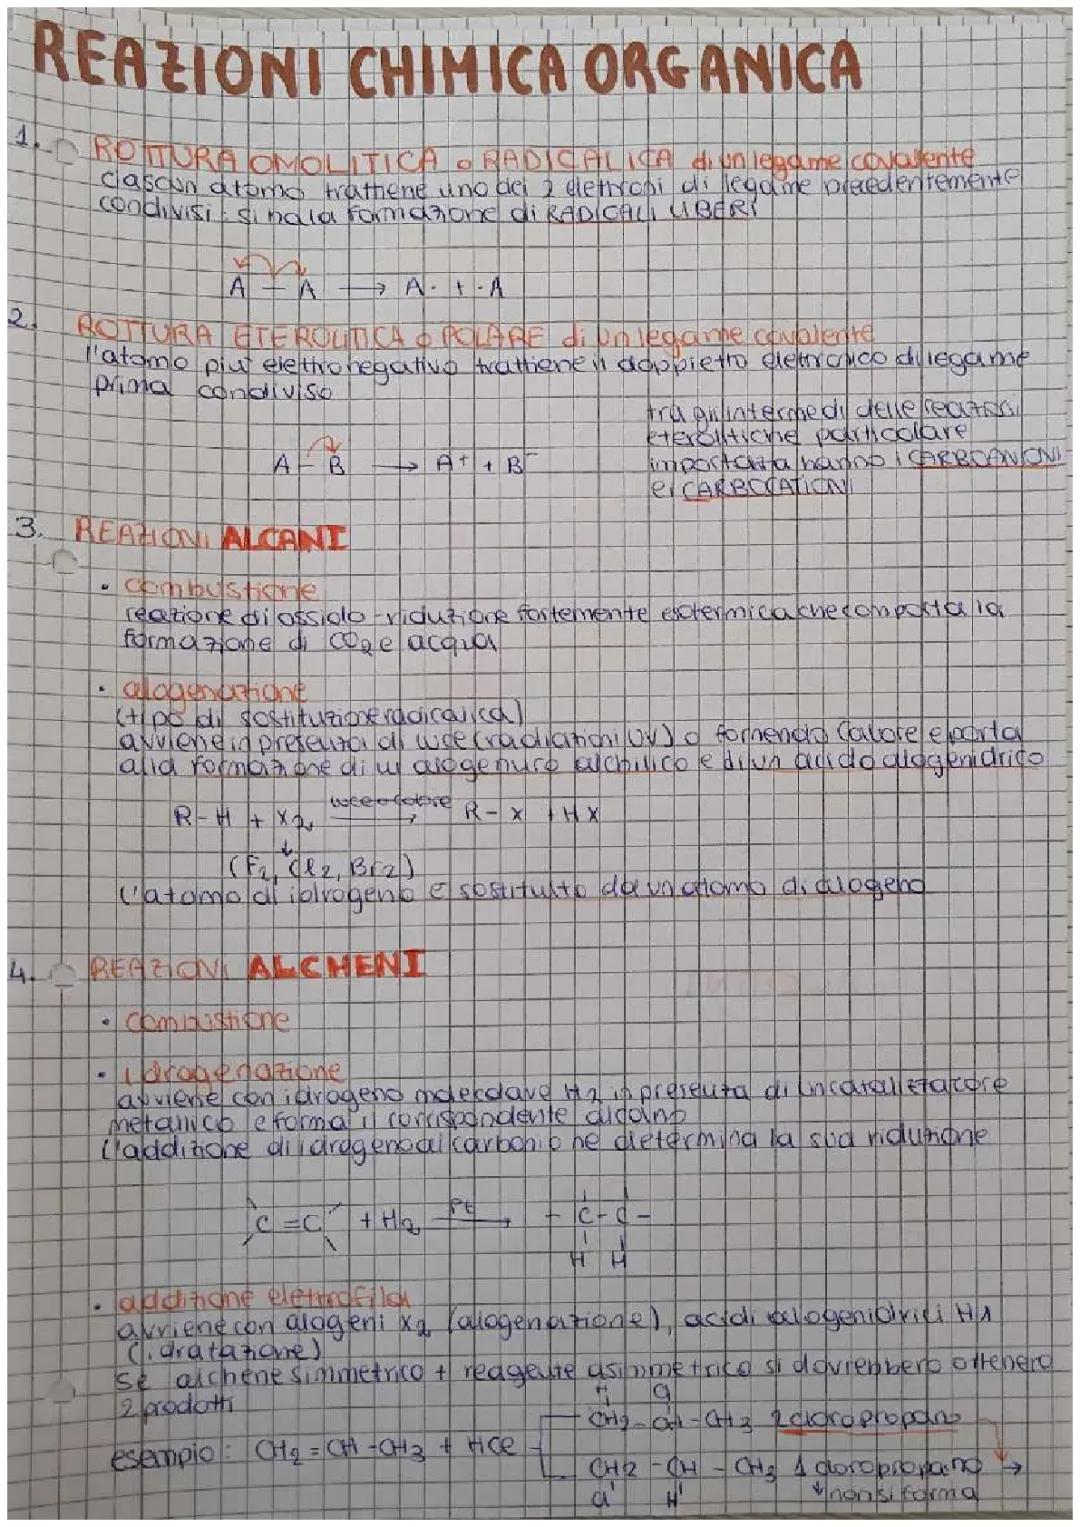 REAZIONI CHIMICA ORGANICA
1. ROTTURA OMOLITICA o RADICALICA di un legame covalente
ciascun atomo trattiene uno dei 2 elettroni di legame precedentemente
condivisi: si ha la formazione di RADICALI LIBERI
A - A → A· + ·A
2. ROTTURA ETEROLITICA o POLARE di un legame covalente
l'atomo più elettronegativo trattiene il doppietto elettronico di legame
prima condiviso
tra gli intermedi delle reazioni
eterolitiche particolare
importanza hanno i CARBOANIONI
e i CARBOCATIONI
A - B → A+ + B-
3. REAZIONI ALCANI
• combustione
reazione di ossido-riduzione fortemente esotermica che comporta la
formazione di CO2 e acqua
• alogenazione
(tipo di sostituzione radicalica)
avviene in presenza di luce (radiazioni UV) o fornendo calore e porta
alla formazione di un alogenuro alchilico e di un acido alogenidrico
R-H + X2 luce o calore → R-X + HX
↓
(F2, Cl2, Br2)
L'atomo di idrogeno è sostituito da un atomo di alogeno
4. REAZIONI ALCHENI
• combustione
• idrogenazione
avviene con idrogeno molecolare H2 in presenza di un catalizzatore
metallico e forma il corrispondente alcano
L'addizione di idrogeno al carbonio ne determina la sua riduzione
C=C + H2 Pt → -C-C-
H H
• addizione elettrofila
avviene con alogeni X2 (alogenazione), acidi alogenidrici
(idratazione)
se alchene simmetrico + reagente asimmetrico si dovrebbero ottenere
2 prodotti
H Cl
CH2-CH-CH3 2 cloropropano
esempio: CH2=CH-CH3 + HCl
CH2-CH-CH3 1 cloropropano →
Cl H ↓ non si forma